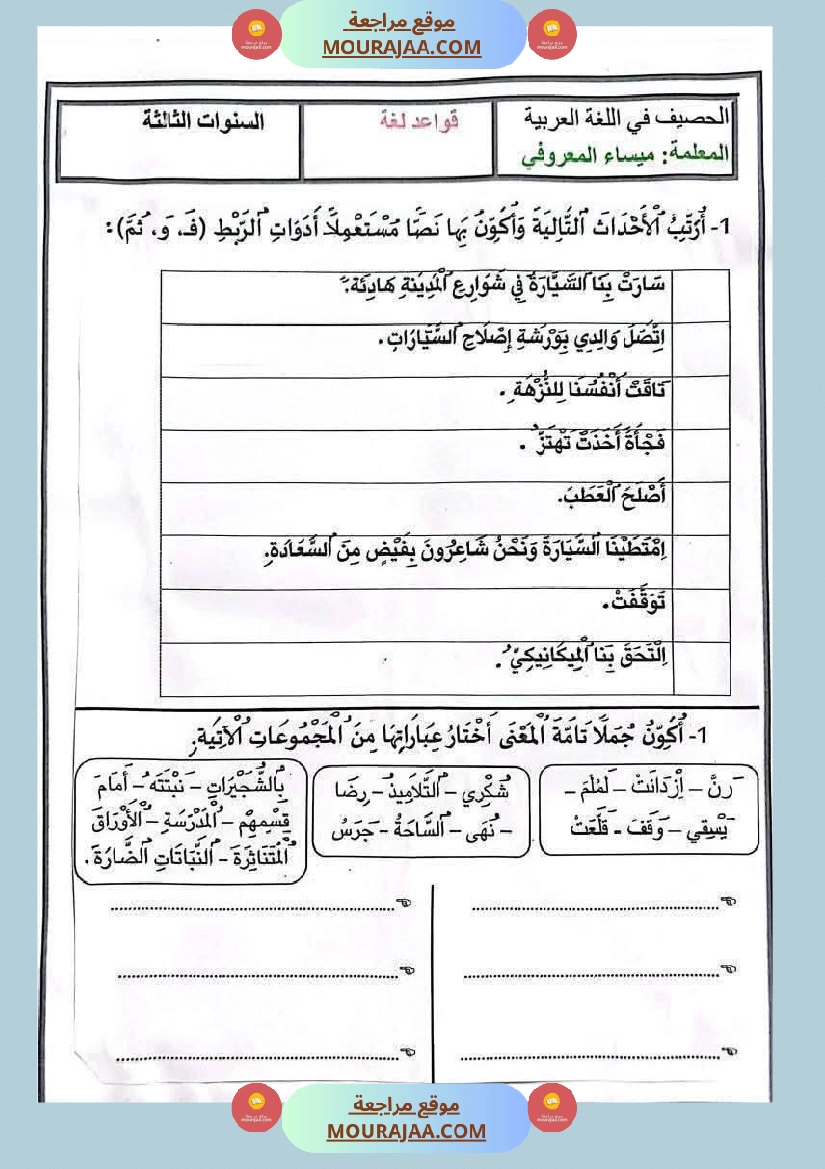 موقع مراجعة
MOURAJAA.COM
الحصيف في اللغة العربية
المعلمة: ميساء المعروفي
قواعد لغة
السنوات الثالثة
1- أُرَتِّبُ الْأَحْدَاثَ التَّالِيَةَ وَأُكَوِّنُ بِهَا نَصًّا مُسْتَعْمِلًا أَدَوَاتِ الرَّبْطِ (فَـ، وَ، ثُمَّ):
سَارَتْ بِنَا السَّيَّارَةُ فِي شَوَارِعِ الْمَدِينَةِ هَادِئَةً.
اِتَّصَلَ وَالِدِي بِوَرْشَةِ إِصْلَاحِ السَّيَّارَاتِ.
تَاقَتْ أَنْفُسُنَا لِلنُّزْهَةِ.
فَجْأَةً أَخَذَتْ تَهْتَزُّ.
أَصْلَحَ الْعَطَبَ.
اِمْتَطَيْنَا السَّيَّارَةَ وَنَحْنُ شَاعِرُونَ بِفَيْضٍ مِنَ السَّعَادَةِ.
تَوَقَّفَتْ.
اِلْتَحَقَ بِنَا الْمِيكَانِيكِيُّ.
1- أُكَوِّنُ جُمَلًا تَامَّةَ الْمَعْنَى أَخْتَارُ عِبَارَاتِهَا مِنَ الْمَجْمُوعَاتِ الْآتِيَةِ.
رَنَّ – اِزْدَانَتْ – لَمْلَمَ –
يَسْقِي – وَقَفَ - قَلَّعَتْ
شُكْرِي – التَّلَامِيذُ – رِضَا
– نُهَى – السَّاحَةُ - جَرَسُ
بِالشُّجَيْرَاتِ – نَبْتَتَهُ – أَمَامَ
قِسْمِهِمْ – الْمَدْرَسَةِ – الْأَوْرَاقَ
الْمُتَنَاثِرَةَ – النَّبَاتَاتِ الضَّارَةَ.
موقع مراجعة
MOURAJAA.COM